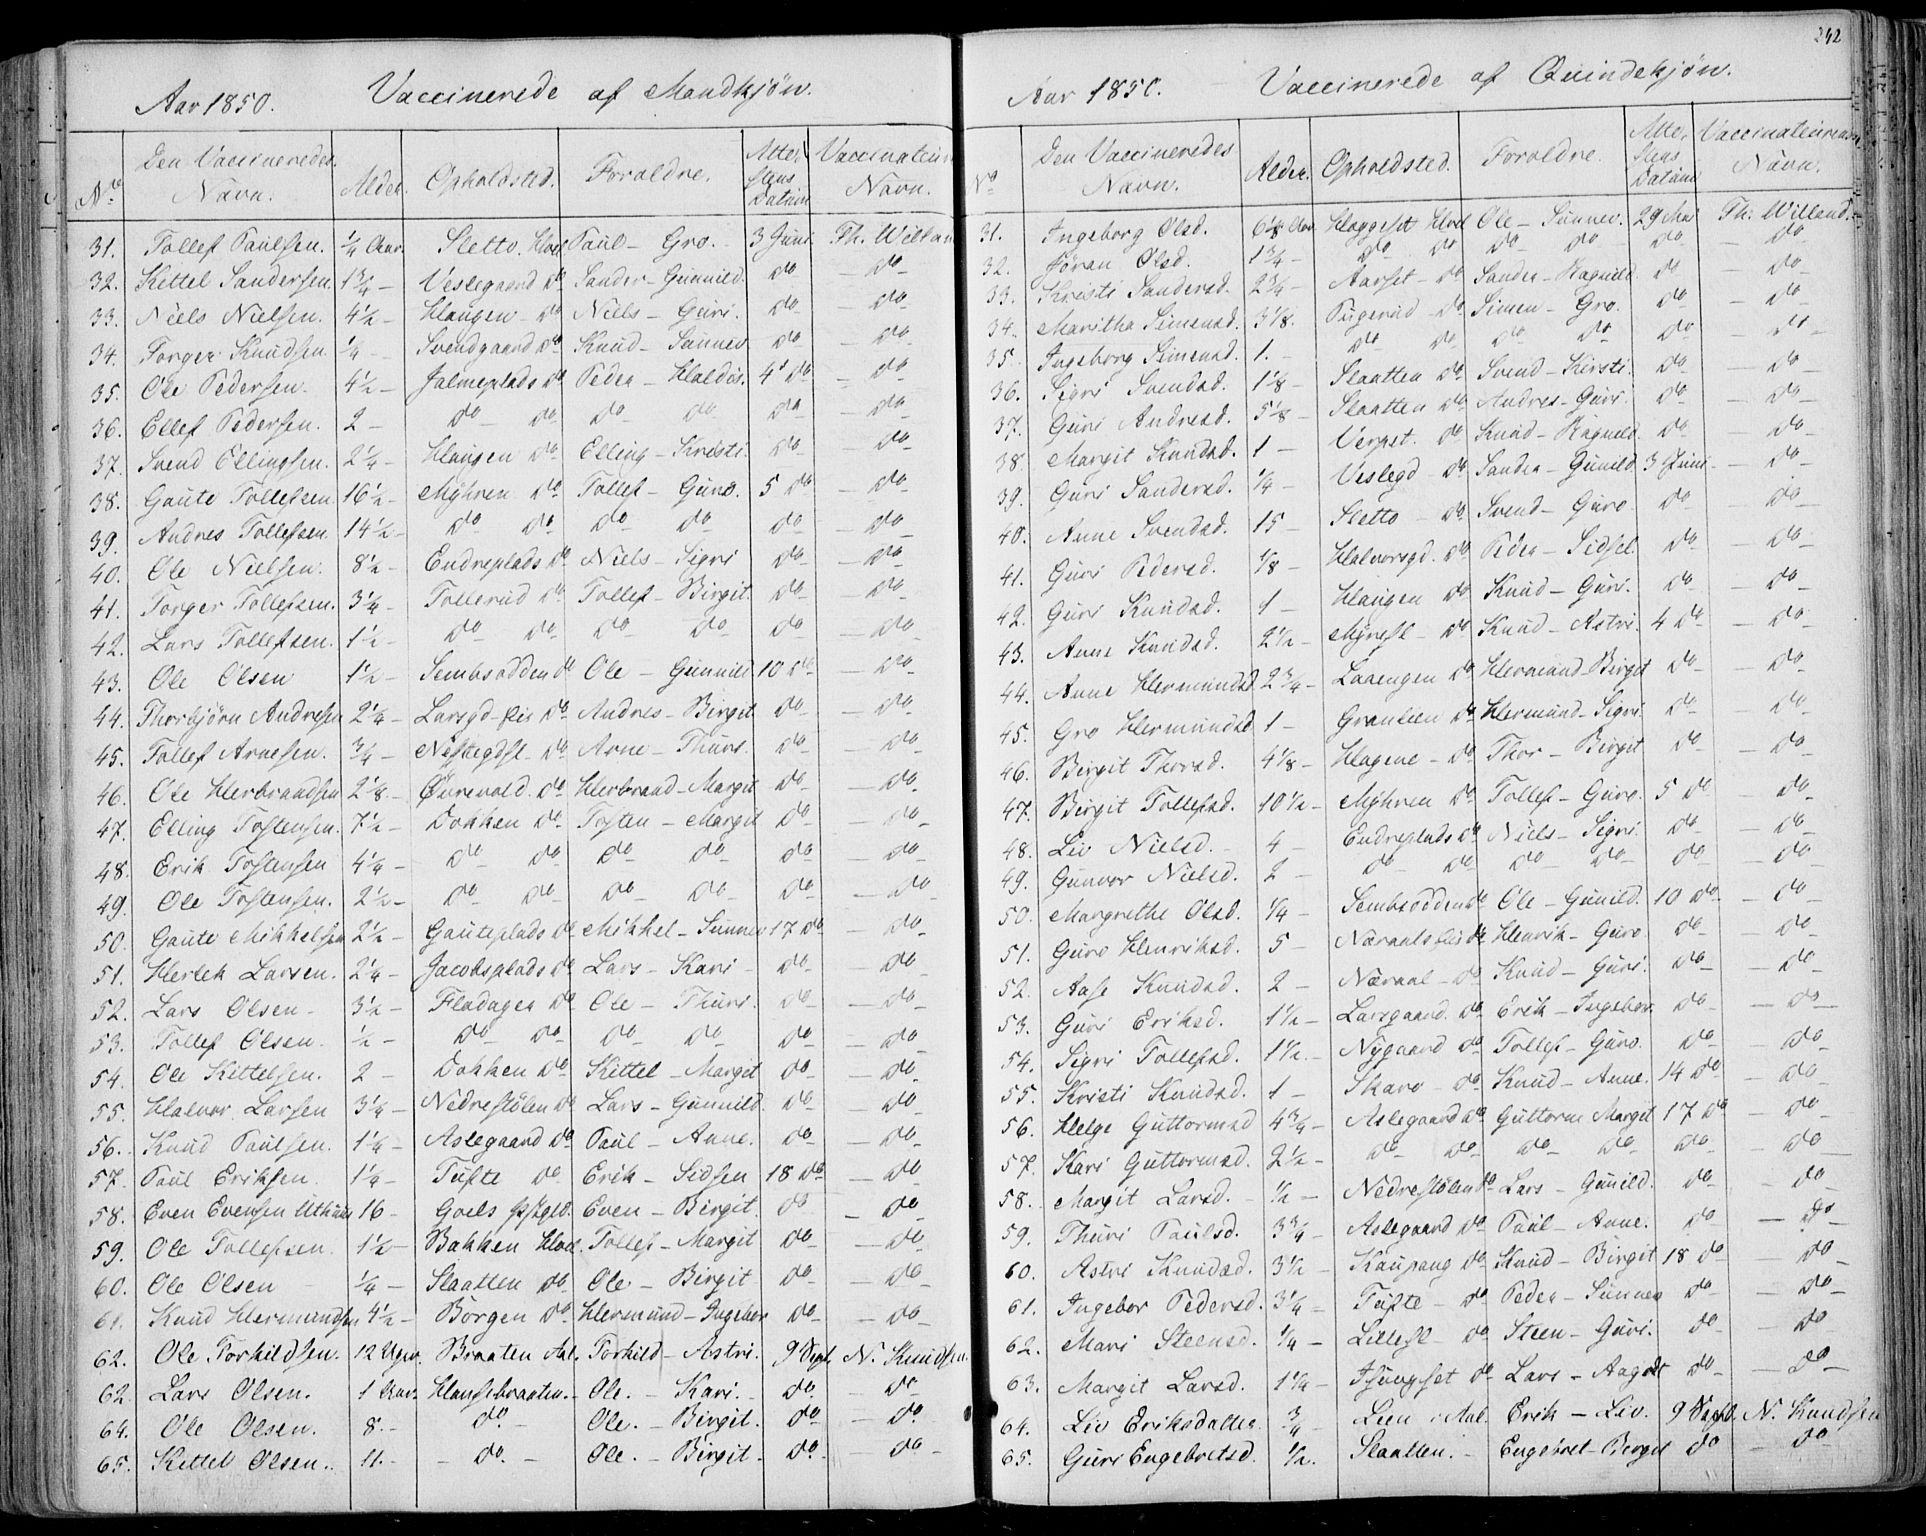 242
Aar 1850. Vaccinerede af Mandkjøn.
No Den Vaccineredes Navn. Alder. Opholdsted. Foræ​ldre. Attestens Datum Vaccinateurens Navn.
31. Tollef Paulsen. ¼ Aar Sletto. Hoel Paul – Gro. 3 Juni Th. Willan
32. Kittel Sandersen. 1¾ – Veslegaard do Sander – Gunnild. do – do –
33. Niels Nielsen. 4½ – Haugen – do Niels – Guri. do – do –
34. Torger Knudsen ¼ – Svendgaard do Knud – Sunnev do – do –
35. Ole Pedersen. 4½ – Jalmeplads do Peder – Haldis. 4 do – do –
36. Ellef Pedersen. 2 – do do do do do – do –
37. Svend Ellingsen. 2¼ – Haugen do Elling – Kristi. do – do –
38. Gaute Tollefsen 16½ – Myhren do Tollef – Guro. 5 do – do –
39. Andres Tollefsen 14½ – do do do do do – do –
40. Ole Nielsen. 8½ – Endreplads do Niels – Sigri do – do –
41. Torger Tollefsen. 3¼ – Tollerud do Tollef – Birgit. do – do –
42. Lars Tollefsen. 1½ – do do do do do – do –
43. Ole Olsen 1½ – Sembsodden do Ole – Gunnild 10 do – do –
44. Thorbjörn Andresen 2¼ – Larsgd. do Andres – Birgit do – do –
45. Tollef Arnesen. ¾ – do Arne – Thuri. do – do –
46. Ole Herbrandsen 2⅛ – do Herbrand – Margit do – do –
47. Elling Tostensen. 7½ – Dokken do Tosten – Margit do – do –
48. Erik Tostensen 4¼ – do do do do do – do –
49. Ole Tostensen. 2½ – do do do do do – do –
50. Gaute Mikkelsen 2½ – Gauteplads do Mikkel – Sunnev 17 do – do –
51. Herlek Larsen. 2¼ – Jacobsplads do Lars – Kari – do – do –
52. Lars Olsen – 3½ – Fladager do Ole – Thuri. do – do –
53. Tollef Olsen. ½ – do do do do do – do –
54. Ole Kittelsen. 2 – Dokken do Kittel – Margit do – do –
55. Halvor Larsen 3¼ – Nedrestölen do Lars – Gunnild. do – do –
56. Knud Paulsen. 1¼ – Aslegaard do Paul – Anne. do – do –
57. Paul Eriksen. 1¼ – Tufte do Erik – Sidsen 18 do – do –
58. Even Evensen 16 – Goels Even – Birgit. do – do –
59. Ole Tollefsen. 1½ – Bakken Hoel. Tollef – Margit do – do –
60. Ole Olsen ¼ – Slaatten do Ole – Birgit do – do –
61. Knud Hermundsen 4½ – Borgen do Hermund – Ingebor do – do –
62. Ole Torkildsen. 12 Uger. Braaten Aal. Torkild – Astri. 9 Sept. N. Knudsen.
62. Lars Olsen. 1 Aar. Hansebraaten. – Ole. – Kari. – do. – do –
64. Ole Olsen. 8. – do. – Ole. – Birgit. do – do.
65. Kittel Olsen. 11. – – do. – Ole. – Birgit. do. do –
Aar 1850. – Vaccinerede af Quindekjøn.
No Den Vaccineredes Navn. Alder. Opholdsted. Forældre. Attestens Datum Vaccinateurens Navn.
31. Ingeborg Olsd. 6⅛ Aar Hoel Ole – Sunnev. 29 Mai Th. Willand.
32. Jöran Olsd. 1¾ – do do do do do – do –
33. Kristi Sandersd. 2¾ – Aarset – do Sander – Ragnild do – do –
34. Maritha Simensd. 3⅛. do Simen – Gro. do – do –
35. Ingeborg Simensd. 1. – do do do do do – do –
36. Sigri Svendsd. 1⅛ – Slaatten do Svend – Kirsti. do – do –
37. Guri Andresd. 5⅛ – Slaatten do Andres – Guri. do – do –
38. Margit Knudsd. 1 – Verpet. do Knud – Ragnild. do – do –
39. Guri Sandersd. ¼ – Veslegd – do Sander – Gunild 3 Juni – do –
40. Anne Svendsd. 15 – Sletto – do Svend – Guro do – do –
41. Guri Pedersd. ⅛ – Halvorsgd. do Peder – Sidsel do – do –
42. Guri Knudsd. 1 – Haugen do Knud – Guri. do – do –
43. Anne Knudsd. 2½ – do Knud – Astri. 4 do – do –
44. Anne Hermundsd 2¾ – Laaengen do Hermund – Birgit do – do –
45. Gro Hermundsd 1 – do Hermund – Sigri. do – do –
46. Birgit Thorsd. 4⅛ – Hagene – do Thor – Birgit do – do –
47. Birgit Tollefsd. 10½ – Myhren do Tollef – Guro. 5 do – do –
48. Liv Nielsd. – 4 – Endreplads do Niels – Sigri. do – do –
49. Gunvor Nielsd. 2 – do do do do do – do –
50. Margrethe Olsd. ¼ – Sembsodden do Ole – Gunild. 10 do – do –
51. Guro Henriksd. 5 – do Henrik – Guro. do – do –
52. Aase Knudsd. 2 – Næraal – do Knud – Guri. do – do –
53. Guri Eriksd. 1½ – Larsgaard. do Erik – Ingebor. do – do –
54. Sigri Tollefsd. 1½ – Nygaard do Tollef – Guro. do – do –
55. Kristi Knudsd. 1 – Skaro – do Knud – Anne. 14 do – do –
56. Helge Guttormsd 4¾ – Aslegaard do Guttorm Margit 17 do – do –
57. Kari Guttormsd. 2½ – do do do do do – do
58. Margit Larsd. – ½ – Nedrestölen do Lars – Gunild. do – do –
59. Thuri Paulsd. 3¾ – Aslegaard do Paul – Anne. do – do –
60. Astri Knudsd. 3½ – Kaupang do Knud – Birgit 18 do – do –
61. Ingebor Pedersd. 3¼ – Tufte – do Peder – Sunnev do – do –
62. Mari Steensd. ¼ – do Steen – Guri. do – do
63. Margit Larsd. 1¼ – do Lars – Aagot do – do –
64. Liv Eriksdatter ¾ – Leen i Aal. Erik – Liv. 9 Septb. N. Knudsen
65. Guri Engebretsd. ½. Slaatten. – Engebret – Birgit do – do –